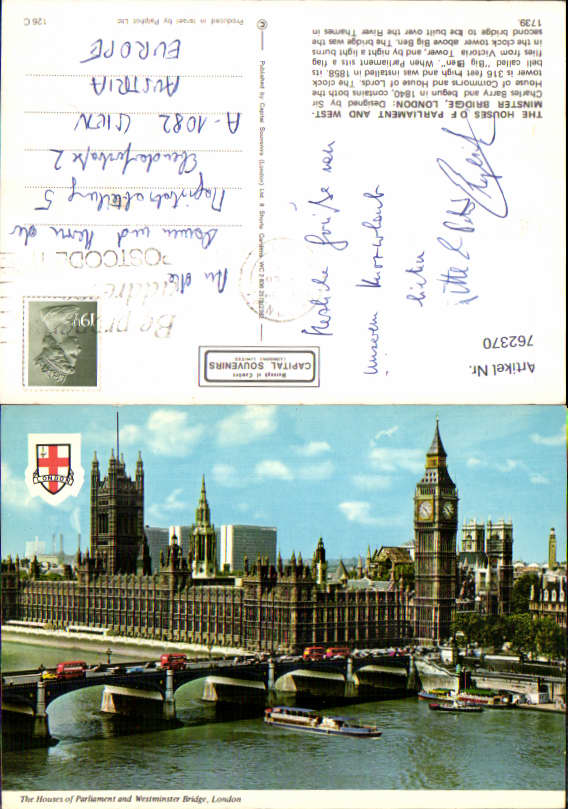 THE HOUSES OF PARLIAMENT AND WEST-
MINSTER BRIDGE, LONDON: Designed by Sir
Charles Barry and begun in 1840, contains both the
House of Commons and House of Lords. The clock
tower is 316 feet high and was installed in 1858, its
bell called "Big Ben". When Parliament sits a flag
flies from Victoria Tower, and by night a light burns
in the clock tower above Big Ben. The bridge was the
second bridge to be built over the River Thames in
1739.
Herzliche Grüße von
unserem Kurzurlaub
Published by Capital Souvenirs (London) Ltd.
An die
Damen und Herrn der
Magistratsabteilung 5
Ebendorferstraße 2
A-1082 WIEN
AUSTRIA
EUROPE
©
126 C
Produced in Israel by Palphot Ltd
POSTCODE
Be
19½
CAPITAL SOUVENIRS
(LONDON) LIMITED
Artikel Nr.
762370
LONDON
The Houses of Parliament and Westminster Bridge, London